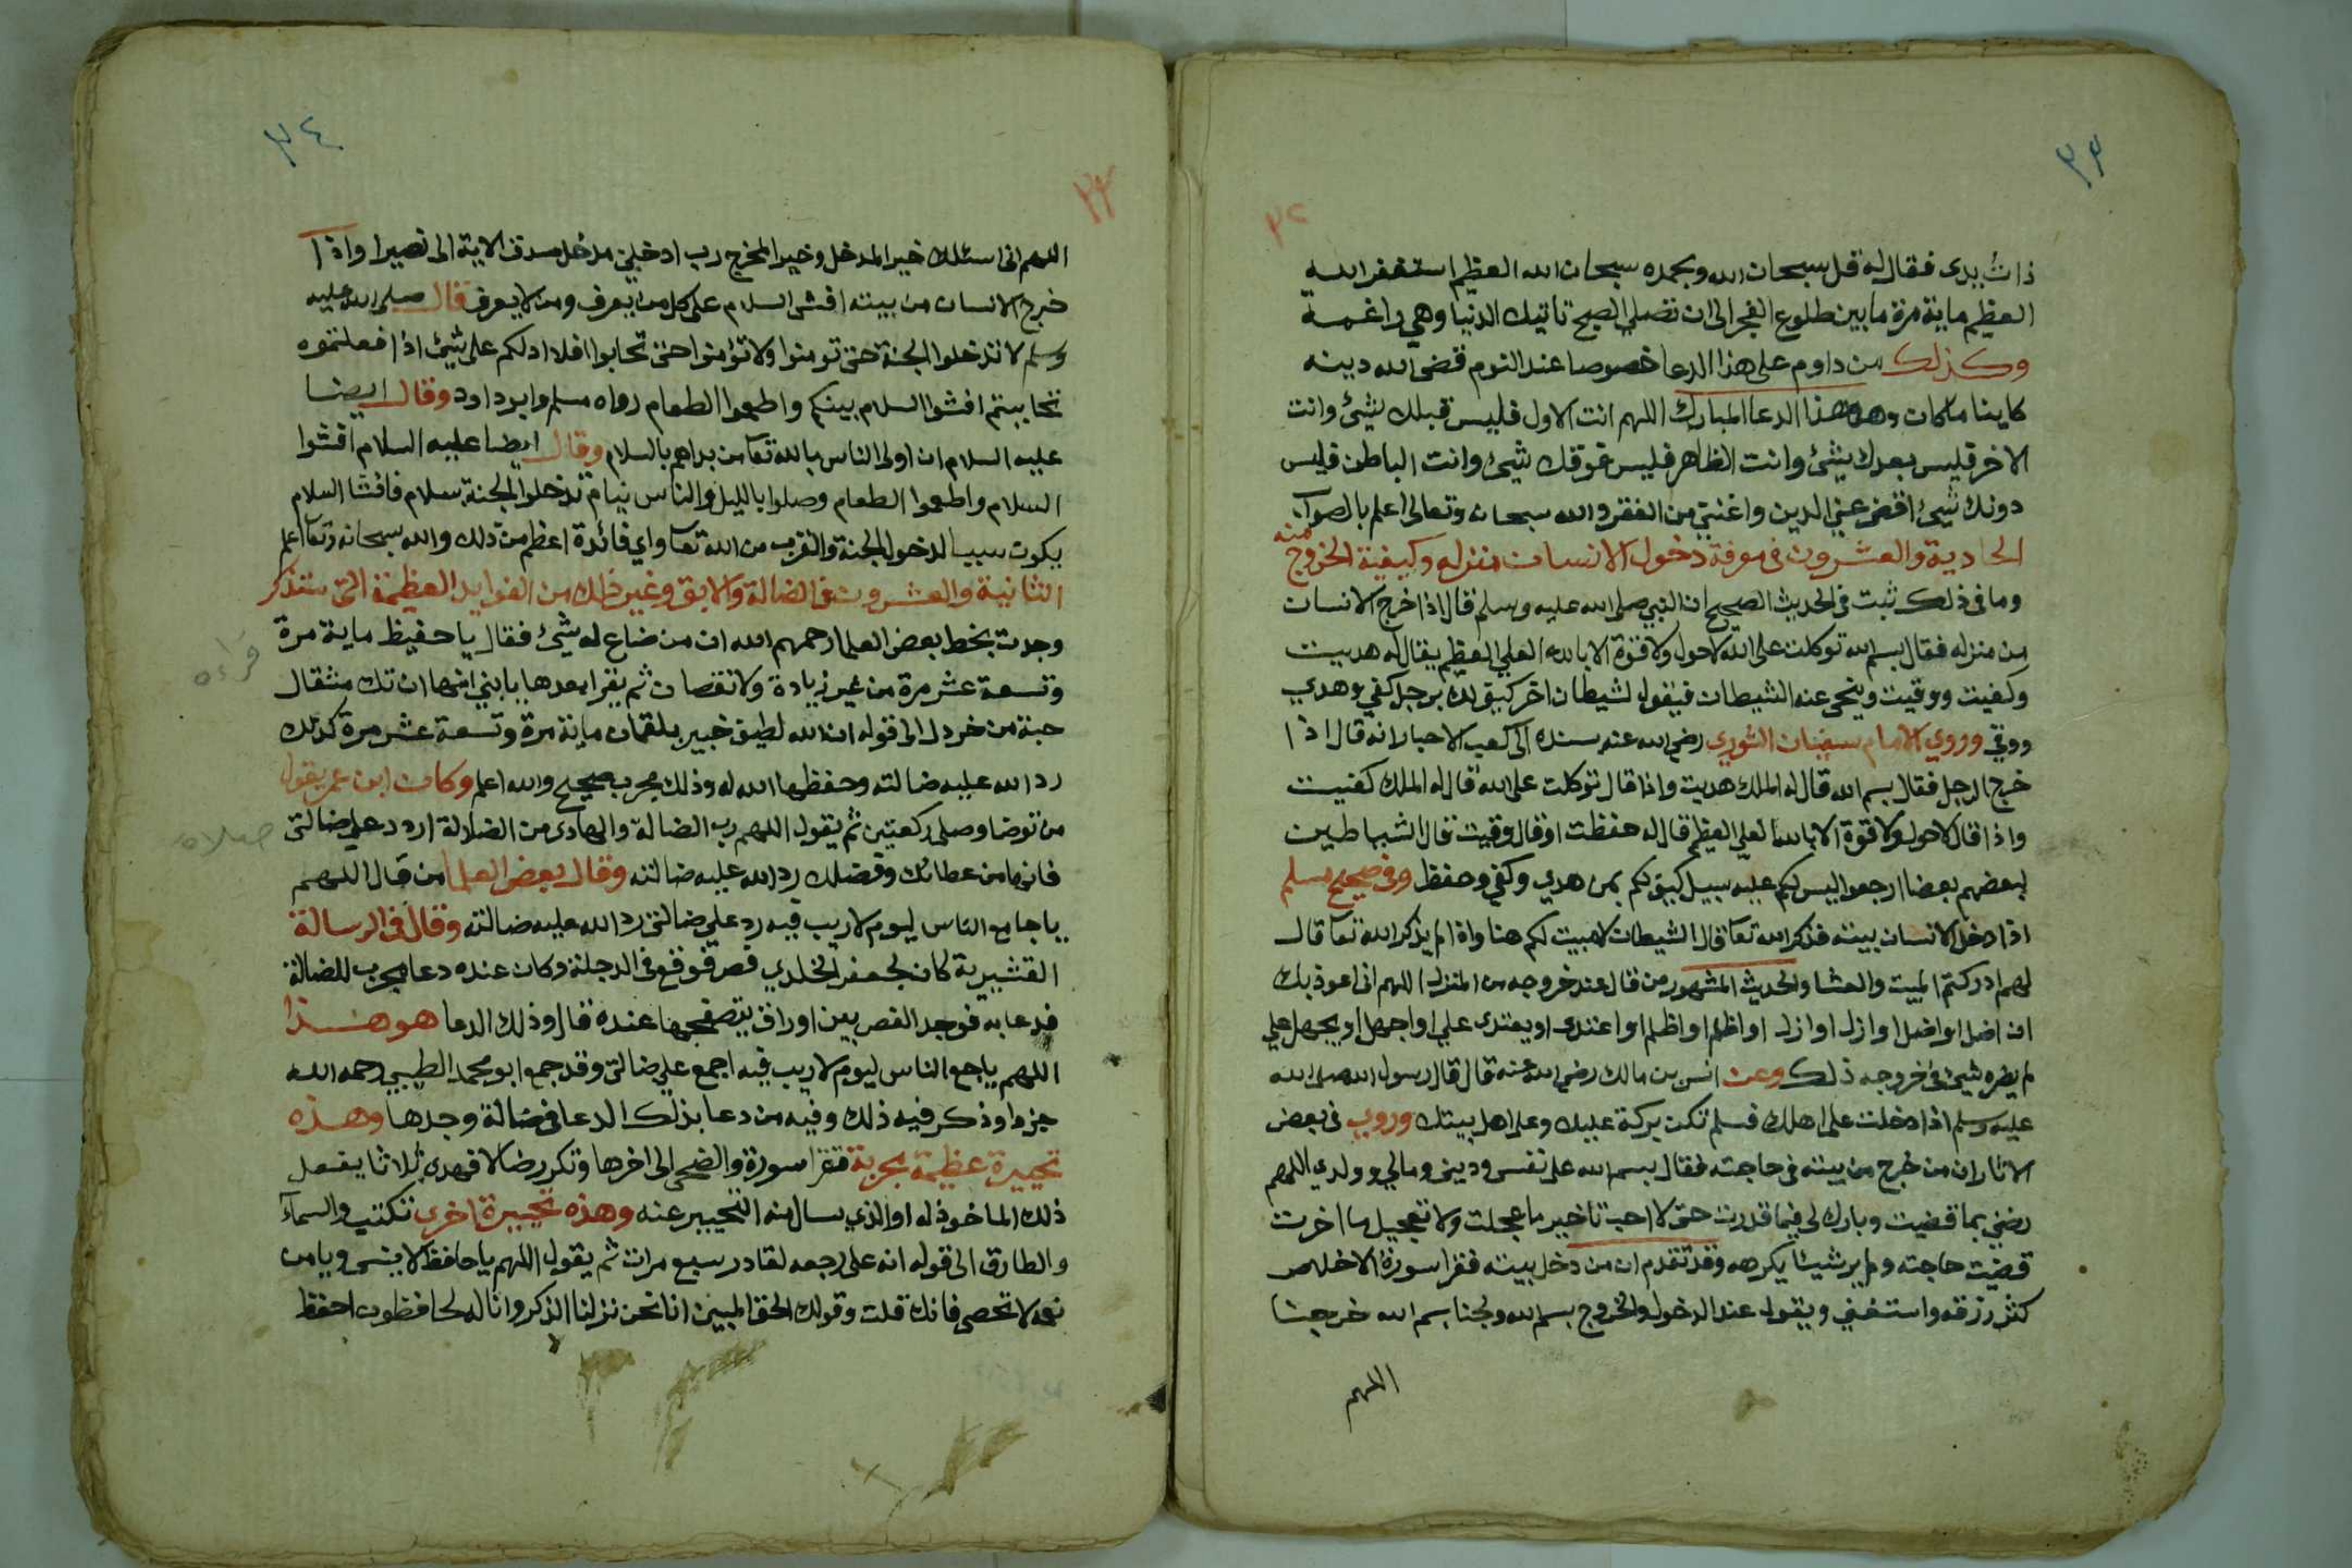 ٣٣
٣٢
ذات يدى فقال له قل سبحان الله وبحمده سبحان الله العظيم استغفر الله
العظيم ماية مرة ما بين طلوع الفجر الى ان تصلي الصبح تاتيك الدنيا وهي راغمة
وكذلك من داوم على هذا الدعا خصوصا عند النوم قضى الله دينه
كاينا ما كان وهو هذا الدعا المبارك اللهم انت الاول فليس قبلك شيئ وانت
الاخر فليس بعدك شيئ وانت الظاهر فليس فوقك شيئ وانت الباطن فليس
دونك شيئ اقض عني الدين واغنني من الفقر والله سبحانه وتعالى اعلم بالصواب
الحادية والعشرون فى معرفة دخول الانسان منزله وكيفية الخروج منه
وما فى ذلك ثبت فى الحديث الصحيح ان النبي صلى الله عليه وسلم قال اذا خرج الانسان
من منزله فقال بسم الله توكلت على الله لا حول ولا قوة الا بالله العلي العظيم يقال له هديت
وكفيت ووقيت ويتنحى عنه الشيطان فيقول لشيطان اخر كيف لك برجل كفي وهدي
ووقي وروي الامام سفيان الثوري رضي الله عنه بسنده الى كعب الاحبار انه قال اذا
خرج الرجل فقال بسم الله قال له الملك هديت واذا قال توكلت على الله قال له الملك كفيت
واذا قال لا حول ولا قوة الا بالله العلي العظيم قال له حفظت او قال وقيت فقال الشياطين
لبعضهم بعضا ارجعوا ليس لكم عليه سبيل كيف لكم بمن هدي وكفي وحفظ وفى صحيح مسلم
اذا دخل الانسان بيته فذكر الله تعا قال الشيطان لا مبيت لكم هنا واذا لم يذكر الله تعا قال
لهم ادركتم المبيت والعشا والحديث المشهور من قال عند خروجه من المنزل اللهم انى اعوذ بك
ان اضل او اضل او ازل او ازل او اظلم او اظلم او اعتدى او يعتدى علي او اجهل او يجهل علي
لم يضره شيئ فى خروجه ذلك وعن انس بن مالك رضي الله عنه قال قال رسول الله صلى الله
عليه وسلم اذا دخلت على اهلك فسلم تكن بركة عليك وعلى اهل بيتك وروي فى بعض
الاثار ان من خرج من بيته فى حاجته فقال بسم الله على نفسي وديني ومالي وولدي اللهم
رضني بما قضيت وبارك لي فيما قدرت حتى لا احب تاخير ما عجلت ولا تعجيل ما اخرت
قضيت حاجته ولم ير شيئا يكرهه وقد تقدم ان من دخل بيته فقرا سورة الاخلاص
كثر رزقه واستغني ويقول عند الدخول والخروج بسم الله ولجنا بسم الله خرجنا
اللهم
٣٤
٣٣
اللهم انى اسئلك خير المدخل وخير المخرج رب ادخلني مدخل صدق الاية الى نصيرا واذا
خرج الانسان من بيته افشى السلام على كل من يعرف ومن لا يعرف قال صلى الله عليه
وسلم لا تدخلوا الجنة حتى تومنوا ولا تؤمنوا حتى تحابوا افلا ادلكم على شيئ اذا فعلتموه
تحاببتم افشوا السلام بينكم واطعموا الطعام رواه مسلم وابو داود وقال ايضا
عليه السلام ان اولى الناس بالله تعا من بداهم بالسلام وقال ايضا عليه السلام افشوا
السلام واطعموا الطعام وصلوا بالليل والناس نيام تدخلوا الجنة بسلام فافشا السلام
يكون سببا لدخول الجنة والقرب من الله تعا واي فائدة اعظم من ذلك والله سبحانه وتعا اعلم
الثانية والعشرون فى الضالة والابق وغير ذلك من الفوايد العظيمة التى ستذكر
وجدت بخط بعض العلما رحمهم الله ان من ضاع له شيئ فقال يا حفيظ ماية مرة
وتسعة عشر مرة من غير زيادة ولا نقصان ثم يقرا بعدها يا بني انها ان تك مثقال
قراءه
حبة من خردل الى قوله ان الله لطيف خبير بلقمان ماية مرة وتسعة عشر مرة كذلك
رد الله عليه ضالته وحفظها الله له وذلك مجرب صحيح والله اعلم وكان ابن عمر يقول
من توضا وصلى ركعتين ثم يقول اللهم رب الضالة والهادى من الضلالة اردد علي ضالتى
صلاه
فانها من عطائك وفضلك رد الله عليه ضالته وقال بعض العلما من قال اللهم
يا جامع الناس ليوم لا ريب فيه رد علي ضالتى رد الله عليه ضالته وقال فى الرسالة
القشيرية كان لجعفر الخلدي فص فوقع فى الدجلة وكان عنده دعا مجرب للضالة
فدعا به فوجد الفص بين اوراق يتصفحها عنده قال وذلك الدعا هو هذا
اللهم يا جامع الناس ليوم لا ريب فيه اجمع علي ضالتى وقد جمع ابو محمد الطبسي رحمه الله
جزءا وذكر فيه ذلك وفيه من دعا بذلك الدعا فى ضالة وجدها وهذه
تحييرة عظيمة مجربة تقرا سورة والضحى الى اخرها وتكرر ضالا فهدى ثلاثا يفعل
ذلك الماخوذ له او الذي سال منه التحيير عنه وهذه تحييرة اخرى تكتب والسماء
والطارق الى قوله انه على رجعه لقادر سبع مرات ثم يقول اللهم يا حافظ لا ينسى ويا من
نعمه لا تحصى فانك قلت وقولك الحق المبين انا نحن نزلنا الذكر وانا له لحافظون احفظ